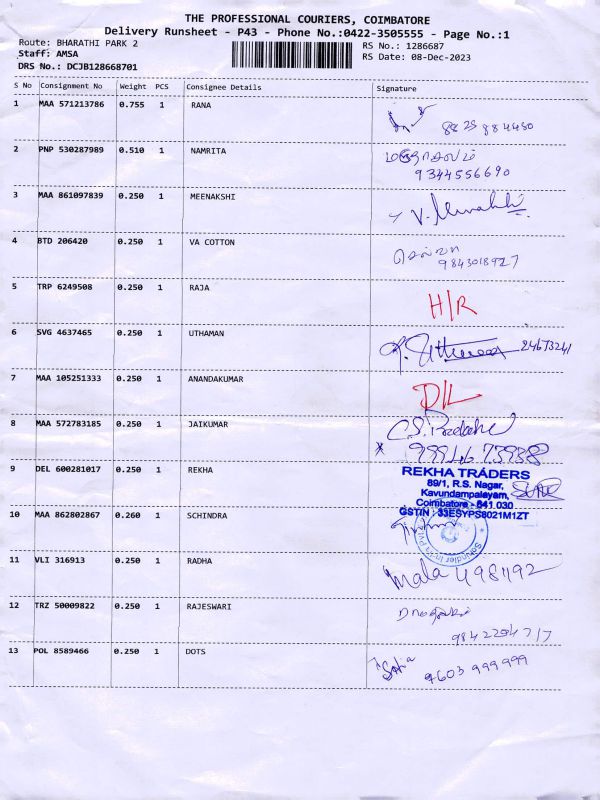 THE PROFESSIONAL COURIERS, COIMBATORE
Delivery Runsheet - P43 - Phone No.:0422-3505555 - Page No.:1
Route: BHARATHI PARK 2
RS No.: 1286687
Staff: AMSA
RS Date: 08-Dec-2023
DRS No.: DCJB128668701
S No Consignment No Weight PCS Consignee Details Signature
1 MAA 571213786 0.755 1 RANA
2 PNP 530287989 0.510 1 NAMRITA
9344556690
3 MAA 861097839 0.250 1 MEENAKSHI V. Meenakshi
4 BTD 206420 0.250 1 VA COTTON
9843018927
5 TRP 6249508 0.250 1 RAJA H/R
6 SVG 4637465 0.250 1 UTHAMAN
7 MAA 105251333 0.250 1 ANANDAKUMAR D/L
8 MAA 572783185 0.250 1 JAIKUMAR
9 DEL 600281017 0.250 1 REKHA
REKHA TRADERS
89/1, R.S. Nagar,
Kavundampalayam,
Coimbatore - 641 030
GSTIN : 33ESYPS8021M1ZT
10 MAA 862802867 0.260 1 SCHINDRA
11 VLI 316913 0.250 1 RADHA Mala
12 TRZ 50009822 0.250 1 RAJESWARI
13 POL 8589466 0.250 1 DOTS
9603 999999